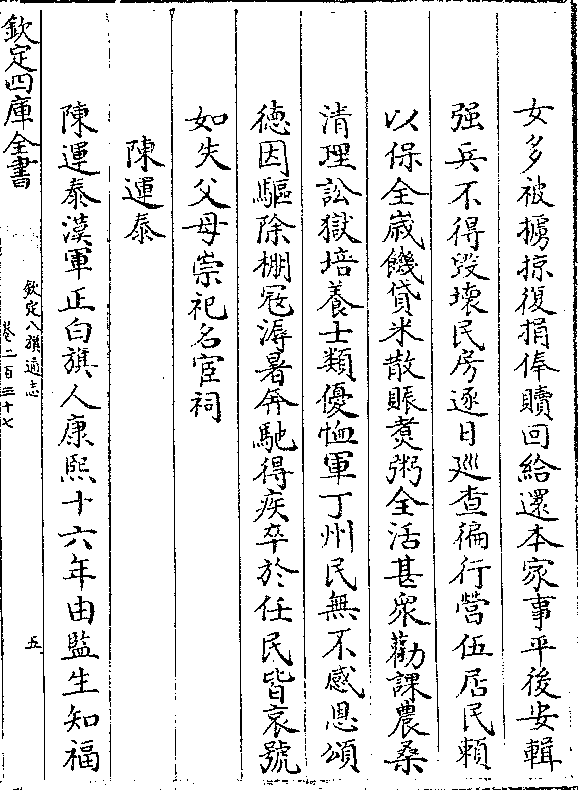 女多被擄掠復捐俸贖回給還本家事平後安輯
强兵不得毀壞民房逐日廵查徧行營伍居民賴
以保全嵗饑貸米散賑煑粥全活甚衆勸課農桑
清理訟獄培養士類優恤軍丁州民無不感恩頌
德因驅除棚寇溽暑奔馳得疾卒於任民皆哀號
如失父母崇祀名宦祠
陳運泰
陳運泰漢軍正白旗人康熙十六年由監生知福
欽定四庫全書
欽定八旗通志
卷二百三十七
五